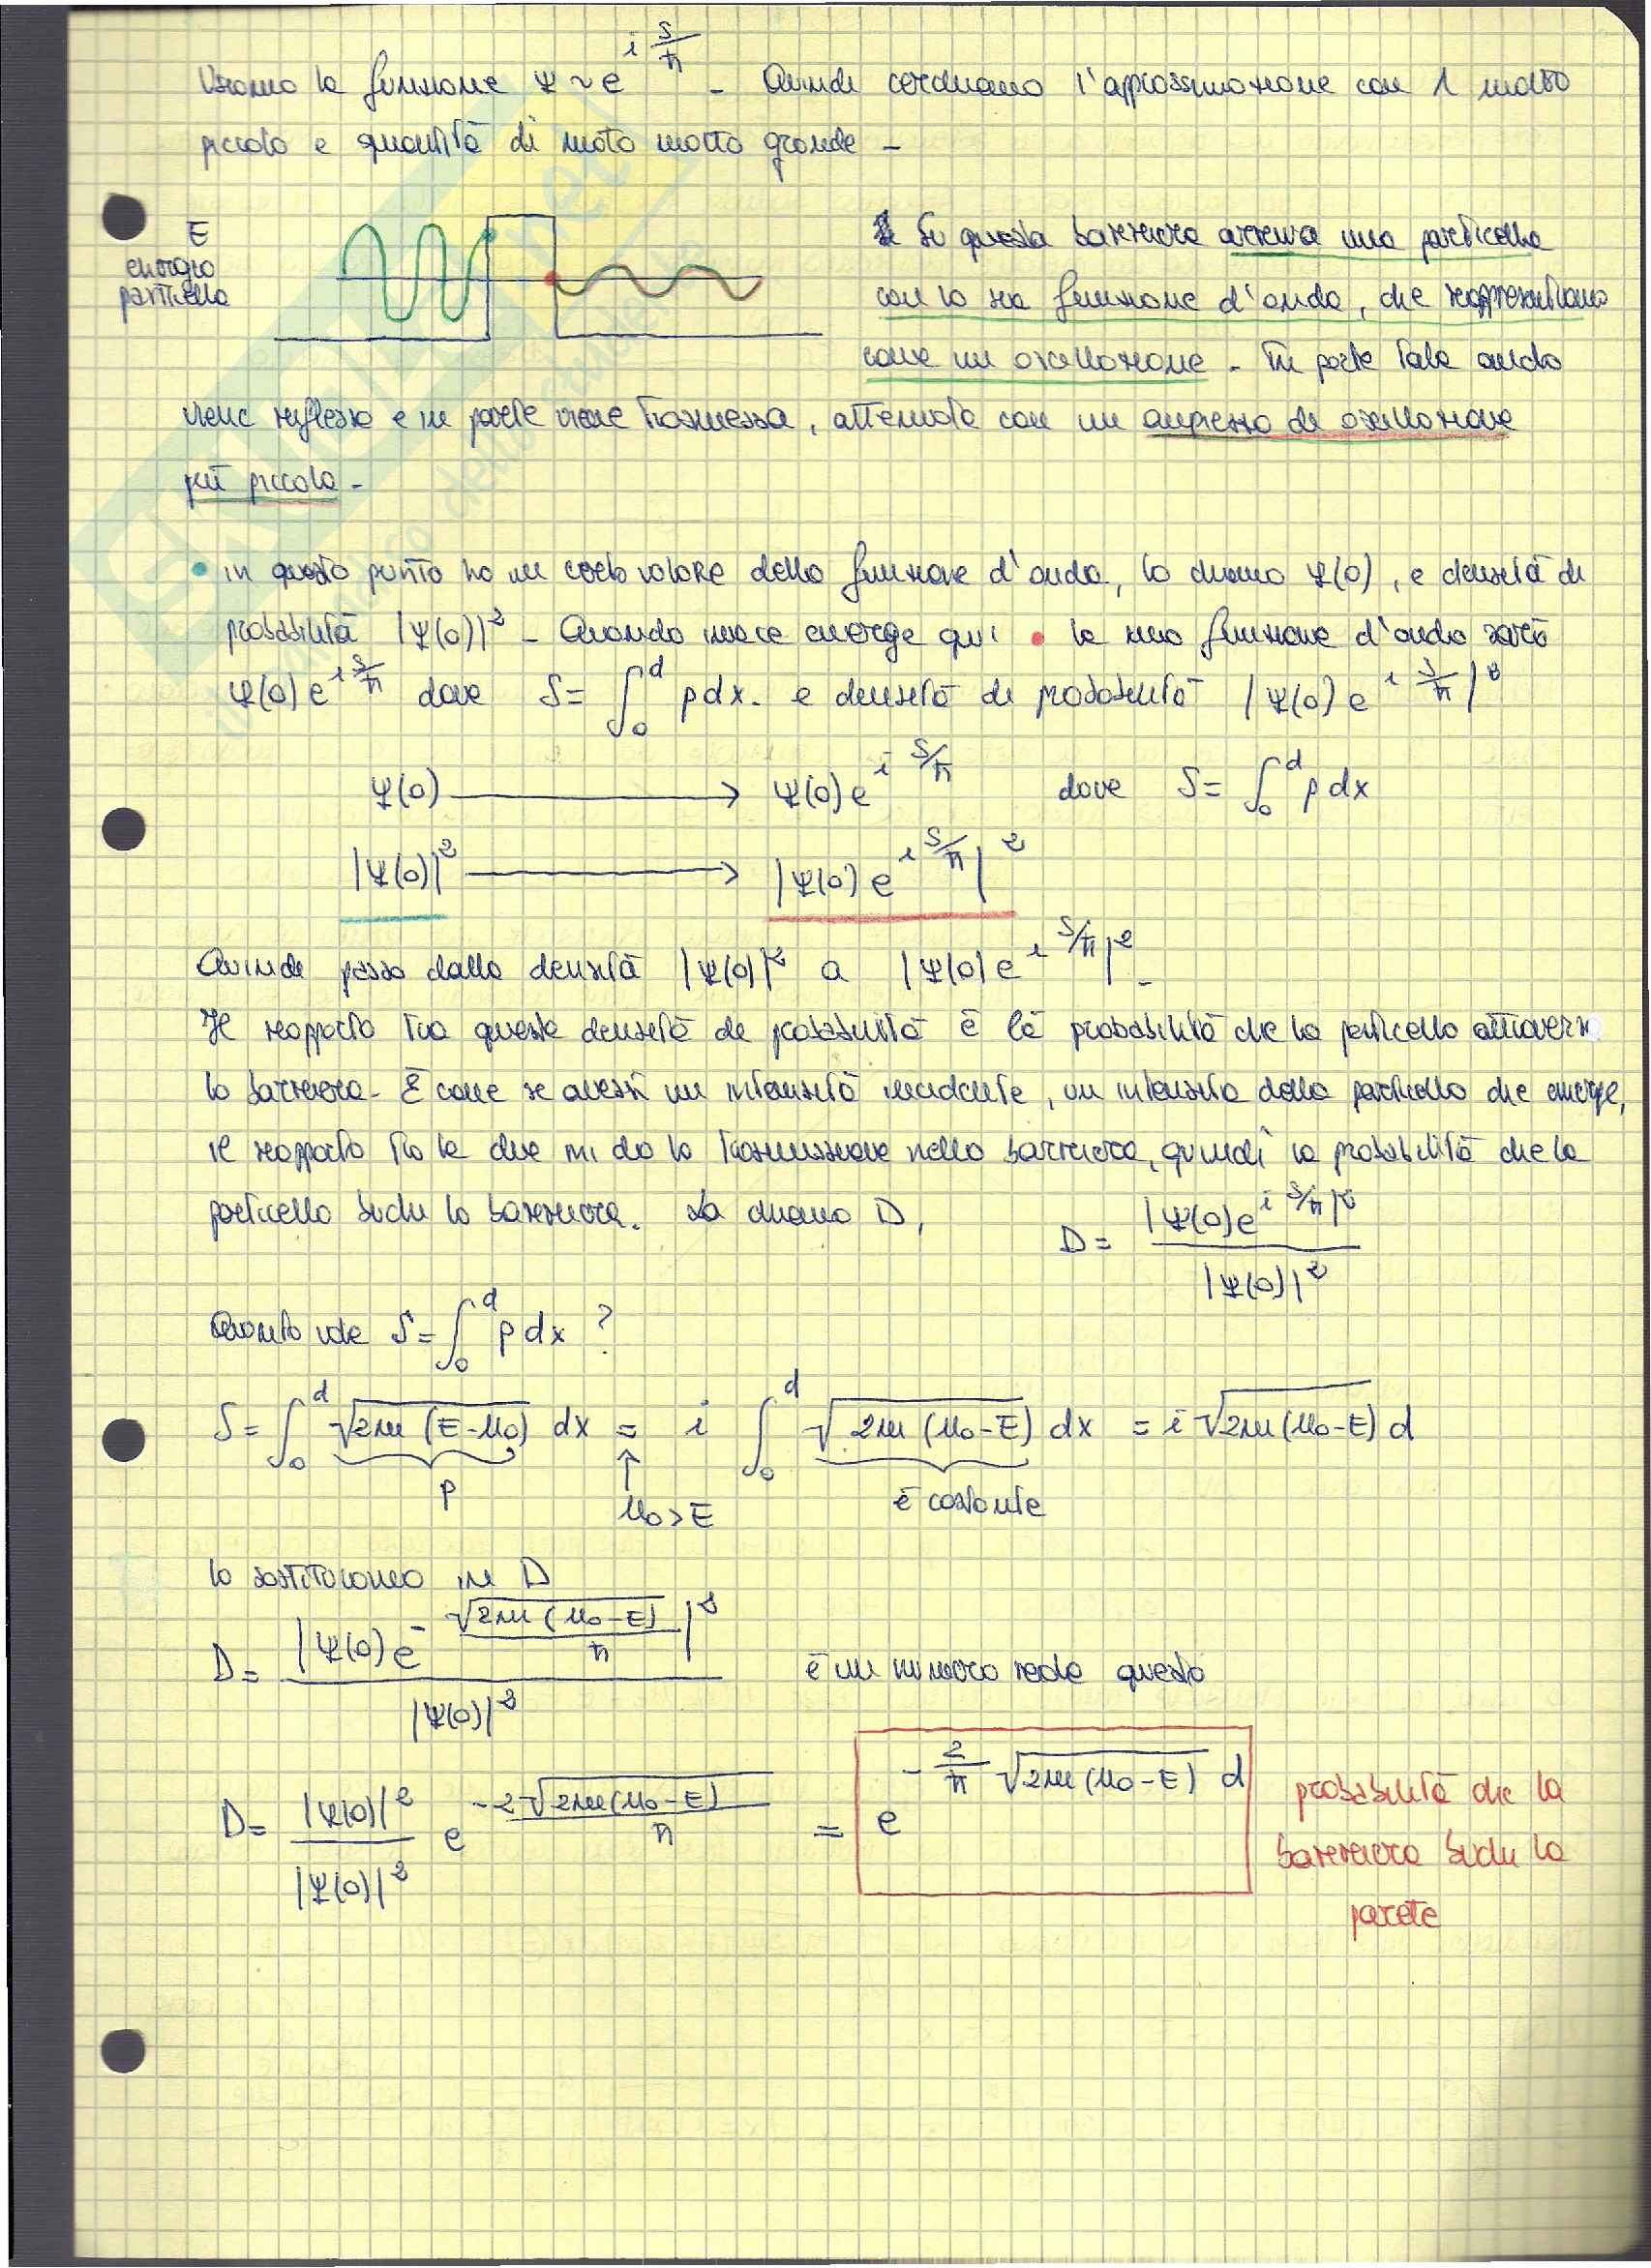 Usiamo la funzione Ψ ~ e^{i S/ħ} - Quindi cerchiamo l'approssimazione con λ molto
piccolo e quantità di moto molto grande -
E
energia
particella
Su questa barriera arriva una particella
con la sua funzione d'onda, che rappresentiamo
come un oscillazione - In parte tale onda
viene riflessa e in parte viene trasmessa, attenuata con un ampiezza di oscillazione
più piccola -
• in questo punto ho un certo valore della funzione d'onda, lo chiamo Ψ(0), e densità di
probabilità |Ψ(0)|² - Quando invece emerge qui • la mia funzione d'onda sarà
Ψ(0) e^{i S/ħ} dove S = ∫₀^d p dx. e densità di probabilità |Ψ(0) e^{i S/ħ}|²
Ψ(0) → Ψ(0) e^{i S/ħ} dove S = ∫₀^d p dx
|Ψ(0)|² → |Ψ(0) e^{i S/ħ}|²
Quindi passo dalla densità |Ψ(0)|² a |Ψ(0) e^{i S/ħ}|² -
Il rapporto tra queste densità di probabilità è la probabilità che la particella attraversi
la barriera - È come se avessi un intensità incidente, un intensità della particella che emerge,
il rapporto tra le due mi da la trasmissione nella barriera, quindi la probabilità che la
particella buchi la barriera. La chiamo D, D = |Ψ(0) e^{i S/ħ}|² / |Ψ(0)|²
Quanto vale S = ∫₀^d p dx ?
S = ∫₀^d √(2m (E-U₀)) dx = i ∫₀^d √(2m (U₀-E)) dx = i √(2m (U₀-E)) d
p
↑
U₀ > E
è costante
lo sostituiamo in D
D = |Ψ(0) e^{- √(2m (U₀-E)) / ħ}|² / |Ψ(0)|² è un numero reale questo
D = |Ψ(0)|² / |Ψ(0)|² e^{-2 √(2m (U₀-E)) / ħ} = e^{- 2/ħ √(2m (U₀-E)) d}
probabilità che la
barriera buchi la
parete